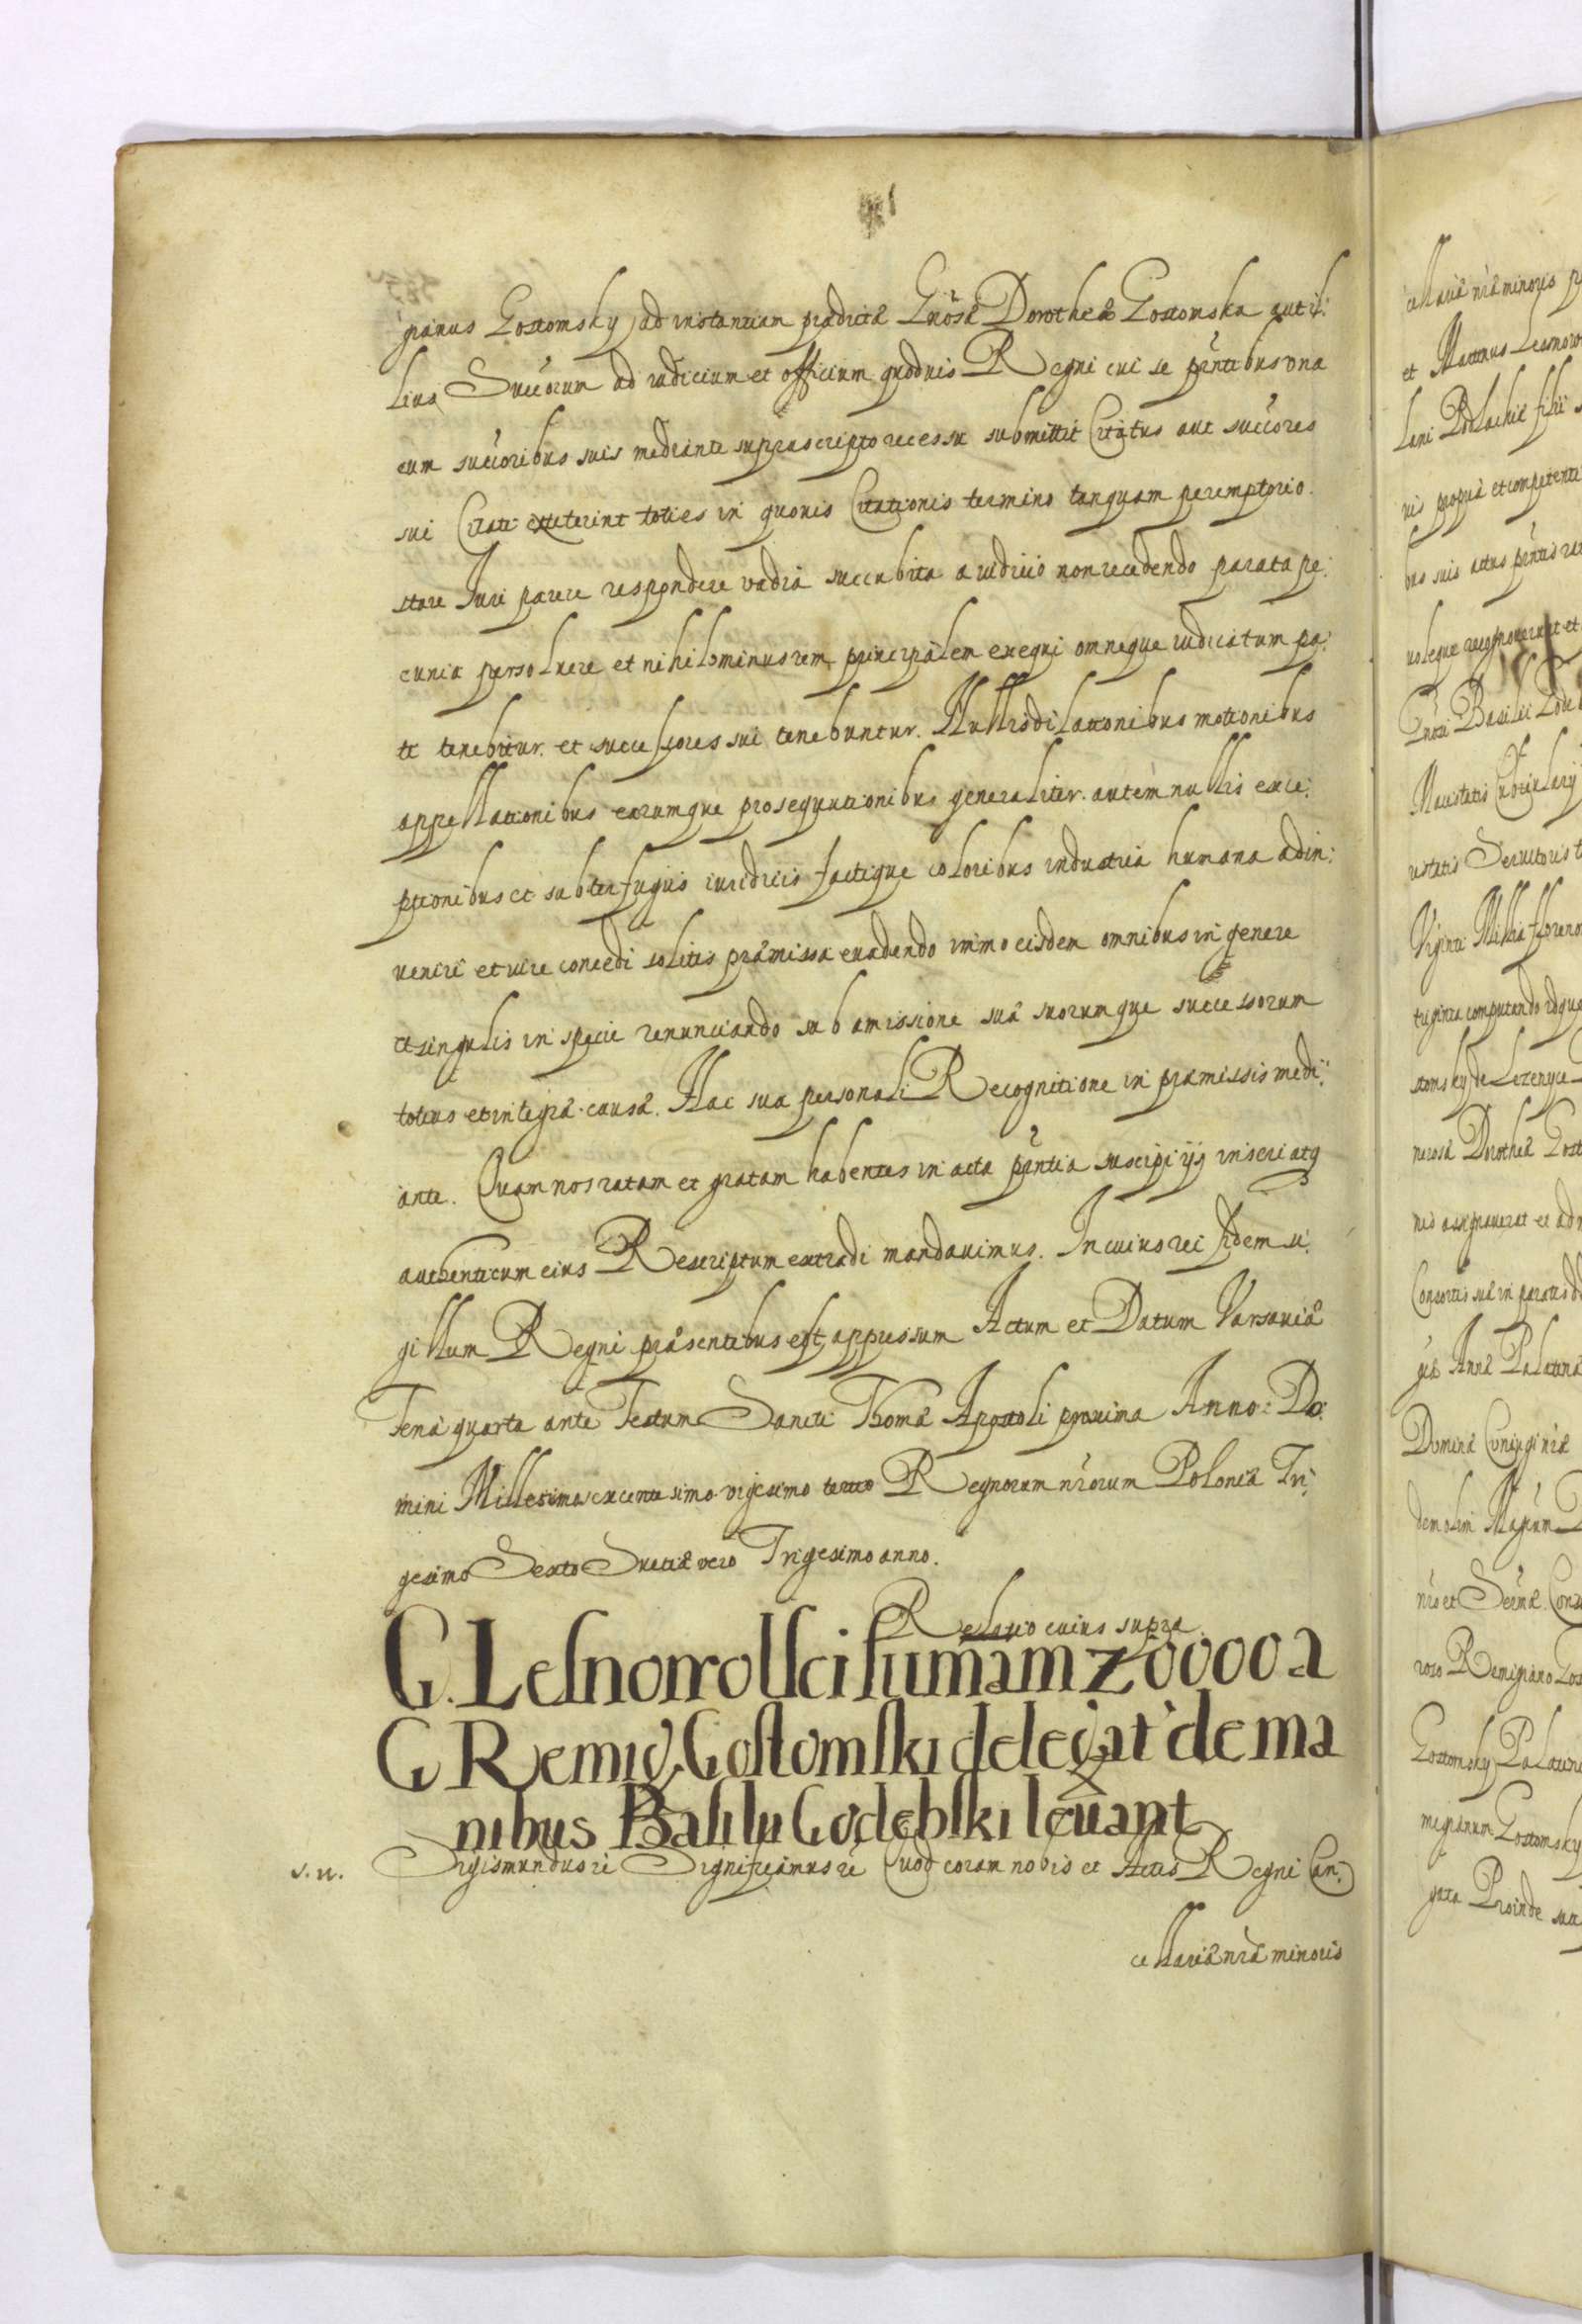 gianus Gostomsky ad instantiam prædictæ Gnosæ Dorotheæ Gostomska aut il:
lius Succorum ad iudicium et officium quoduis Regni cui se pntibus vna
cum succoribus suis mediante suprascripto recessu submittit Citatus aut succores
sui Citati extiterint toties in quouis Citationis termino tanquam peremptorio.
stare Iuri parere respondere vadia succubita a iudicio non recedendo parata pe:
cunia persoluere et nihilominus rem principalem exequi omneque iudicatum pa:
ti tenebitur. et successores sui tenebuntur. Nullis dilationibus motionibus
appellationibus earumque prosequutionibus generaliter. autem nullis exce:
ptionibus et subterfugijs iuridicis factique coloribus industria humana adin:
ueniri et iure concedi solitis præmissa euadendo immo eisdem omnibus in genere
et singulis in specie renunciando sub amissione suæ suorumque successorum
totius et integræ causæ. Hac sua personali Recognitione in præmissis medi:
ante. Quam nos ratam et gratam habentes in acta pntia suscipi ijs inseri atq
authenticum eius Rescriptum extradi mandauimus. In cuius rei fidem si:
gillum Regni præsentibus est appressum Actum et Datum Varsauiæ
Feria quarta ante Festum Sancti Thomæ Apostoli proxima Anno: Do:
mini Millesimo sexcentesimo vigesimo tertio Regnorum nrorum Poloniæ Tri:
gesimo Sexto Sueciæ vero Trigesimo anno.
Relatio cuius supra
G. Lesnowolsci sumam 20000 a
G Remig. Gostomski delegat de ma
nibus Basilii Godebski levant
s. n. Sigismundus ii Significamus ii Quod coram nobis et Actis Regni Can:
cellariæ nræ minoris
cellariæ nræ minoris
et Martinus
lani Podlachiæ filii
ris propria et competenti
bus suis actus pntis
noleque recognouerunt et
Gnosi Basilii
Maiestatis Cubicularij
Seruitoris
Viginti Millia
triginta computando
nerosa Dorothea
nis assignauerat et
Consortis suæ in paratis
Annæ Palatinæ
Domina Coniugi
nro et
roso Remigiano
Gostomsky Palatini
migianum Gostomsky
Proinde